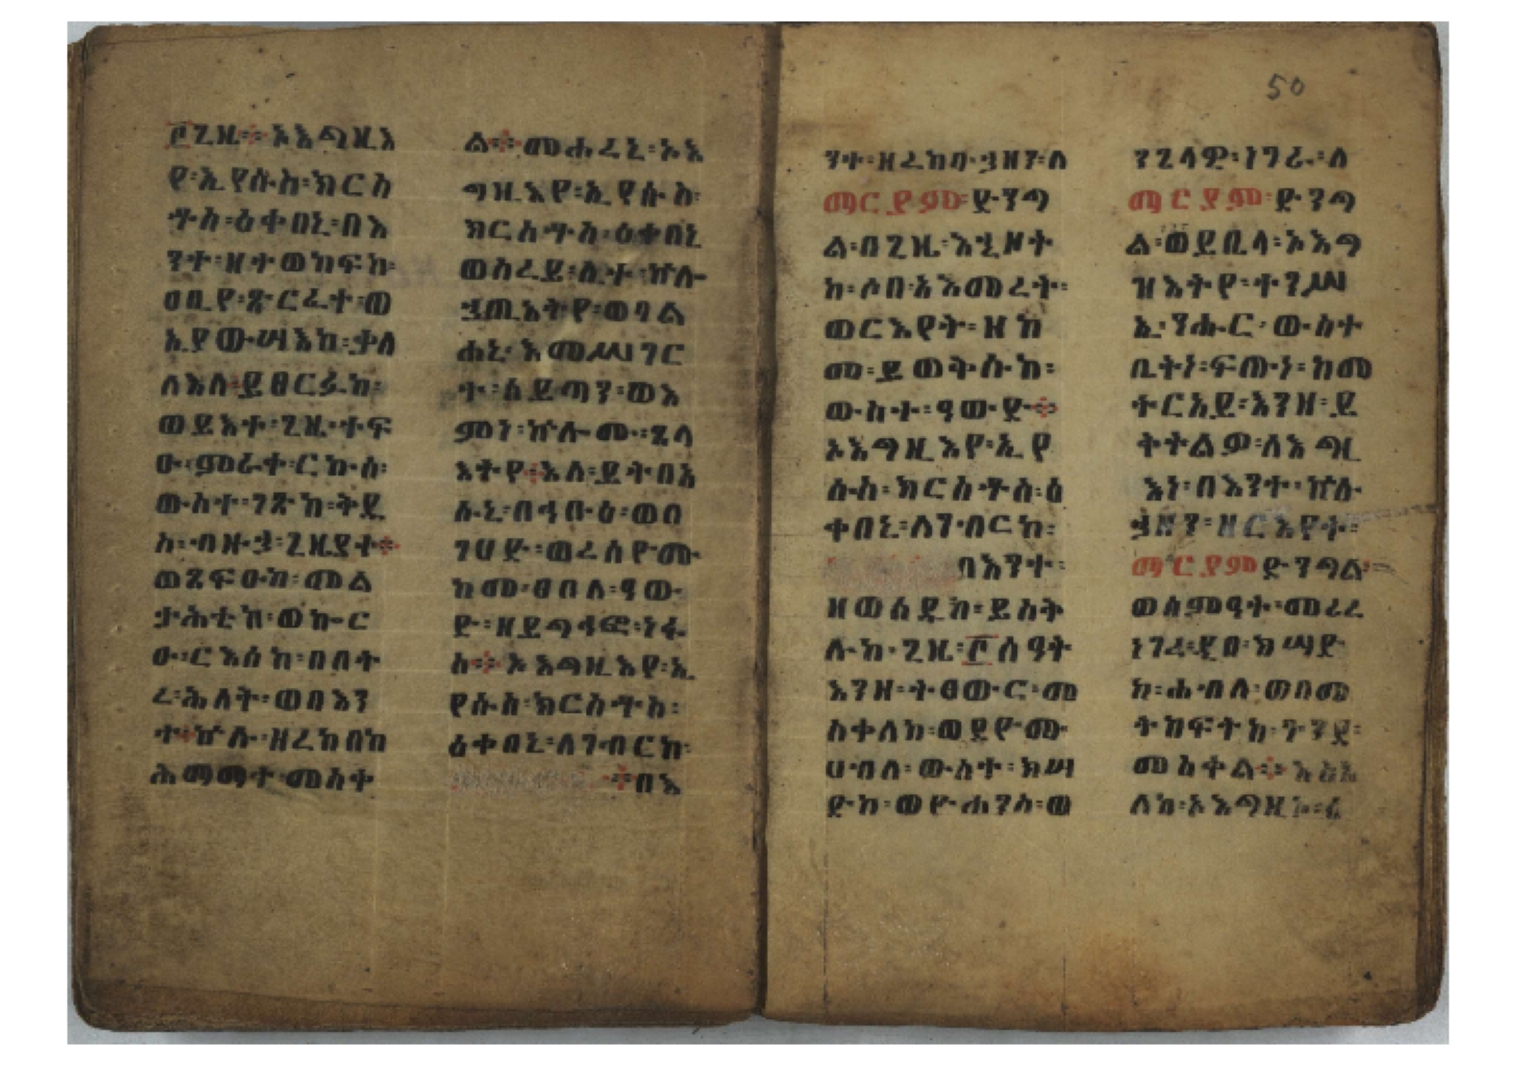 ፫ጊዜ፡ኦእግዚእ
የ፡ኢየሱስ፡ክርስ
ቶስ፡ዕቀበኒ፡በእ
ንተ፡ዘተወክፍከ፡
ዐቢየ፡ጽርፈተ፡ወ
ለእለ፡ይፀርፉከ፡
ወይእተ፡ጊዜ፡ተፍ
ውስተ፡ገጽከ፡
ታሕቲከ፡ወኰር
ዑ፡ርእሰከ፡በበት
ረ፡ሕለት፡ወበእን
ተ፡ኵሉ፡ዘረከበከ
ሕማማተ፡መስቀ
ል፡መሐረኒ፡ኦእ
ግዚእየ፡ኢየሱስ፡
ክርስቶስ፡ዕቀበኒ
ወስረይ፡ሊተ፡ኵሉ
ኃጢአትየ፡ወባል
ሐኒ፡እመሥገር
ተ፡ሰይጣን፡ወእ
ምነ፡ኵሉሙ፡ጸላ
እትየ፡እለ፡ይትበአ
ሱኒ፡በዓቡዕ፡ወበ
ገሀድ፡ወረሰዮሙ
ከመ፡ፀበለ፡ዓው
ድ፡ዘይግሕፎ፡ነፋ
ስ፡ኦእግዚእየ፡ኢ
የሱስ፡ክርስቶስ፡
ዕቀበኒ፡ለገብርከ፡
በእ
ንተ፡ዘረከባ፡ኃዘን፡ለ
ማርያም፡ድንግ
ል፡በጊዜ፡እኂዞት
ከ፡ሶበ፡አእመረት፡
ወርእየት፡ዘከ
መ፡ይወትሱከ፡
ውስተ፡ዓውድ
ኦእግዚእየ፡ኢየ
ሱስ፡ክርስቶስ፡ዕ
ቀበኒ፡ለገብርከ፡
በእንተ፡
ዘወሰዱከ፡ይስት
ሉከ፡ጊዜ፡፫ሰዓት
እንዘ፡ትፀውር፡መ
ስቀለከ፡ወደዮሙ
ሀብለ፡ውስተ፡ክሣ
ድከ፡ወዮሐንስ፡ወ
ንጌላዊ፡ነገራ፡ለ
ማርያም፡ድንግ
ል፡ወይቤላ፡ኦእግ
ዝእትየ፡ተንሥ
ኢ፡ንሑር፡ውስተ
ቤትነ፡ፍጡነ፡ከመ
ትርአይ፡እንዘ፡ይ
ትትልዎ፡ለእግዚ
እነ፡በእንተ፡ኵሉ
ኃዘን፡ዘርእየት፡
ማርያም፡ድንግል፡
ወሰምዓት፡መሪረ
ነገረ፡ዲበ፡ክሣድ
ከ፡ሐብለ፡ወበመ
ትከፍትከ፡
መስቀል፡እስእ
ለከ፡ኦእግዚኦ፡
50